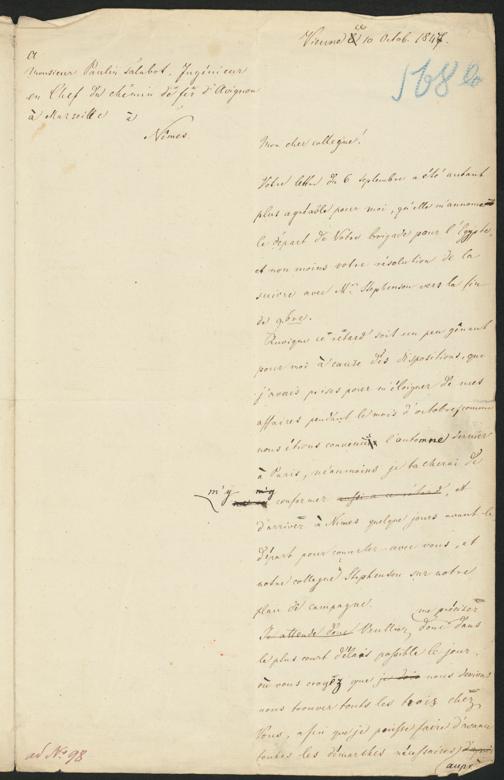 Vienne le 10 Octob. 1847.
168 b
A
Monsieur Paulin Talabot, Ingénieur
en Chef du chémin de fér d'Avignon
à Marseille à
Nîmes.
Mon cher collegue!
Votre lettre du 6 septembre a été autant
plus agréable pour moi, qu'elle m'annonçait
le départ de Votre brigade pour l'Egypte,
et non moins votre résolution de la
suivre avec Mr. Stephenson vers la fin
de 9bre.
Quoique ce rétard soit un peu gênant
pour moi à cause des dispositions, que
j'avais prises pour m'éloigner de mes
affaires pendant le mois d'octobre, comme
nous étions convenus l'automne dernier
à Paris, néanmoins je tacherai de
m'y m'y
conformer aussi a ce rétard, et
d'arriver à Nîmes quelque jours avant le
départ pour concerter avec vous, et
notre collegue Stephenson sur notre
plan de campagne.
me préciser
Je attends donc Veuillez donc dans
le plus court délais possible le jour,
où vous croyez que je dois nous devions
nous trouver touts les trois chez
Vous, afin que je puisse faire d'avance
toutes les démarches nécessaires
(auprès
ad No. 98